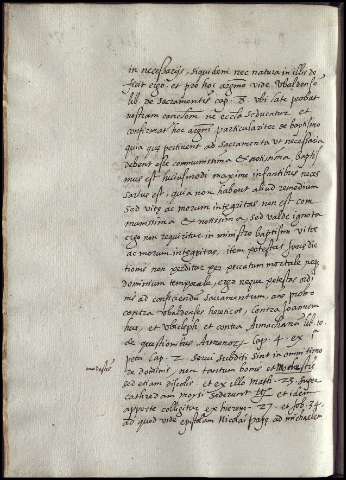 in necessarijs, siquidem nec natura in illis de
ficit ergo et pro hoc argumto vide Ubaldense
lib. de Sacramentis cap. 8. ubi late probat
nostram conclusem ne ecclia seducatur et
confirmat hoc argum particulariter de baptismo
quia quę pertinent ad Sacramenta ut necessaria
debent esse communissima & notissima baptis
mus est huiusmodi maxime infantibus neces
sarius est, quia non habent aliud remedium
sed vitę de morum integritas non est com
munissima & notissima, sed valde ignota
ergo non requiritur in ministro baptismi vitę
de morum integritas, item potestas iurisdic
tionis non perditur per peccatum mortale nec
dominium temporale, ergo neque potestas ordi
nis ad conficiendu Sacramentum,
contra Ubaldenses hereticos, contra Joannem
hus, et Ubicleph et contra Armachanu lib. 10
de questionibus Armenor. cap. 4. ex 1
petri cap. 2. Servi subditi sint in omni timo
re dominis, non tantum bonis et modestis
modestis
sed etiam discolis et ex illo math. 23. super
cathedram moysi sederunt et idem
apperte colligitur ex hierem. 27. et Job. 34.
ad quod vide epistolam Nicolai papę ad michaelem